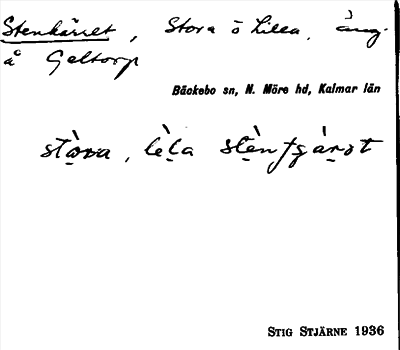 Stenkärret, Stora o Lilla, äng.
å Geltorp
Bäckebo sn, N. Möre hd, Kalmar län
stòra, lèla
STIG STJÄRNE 1936